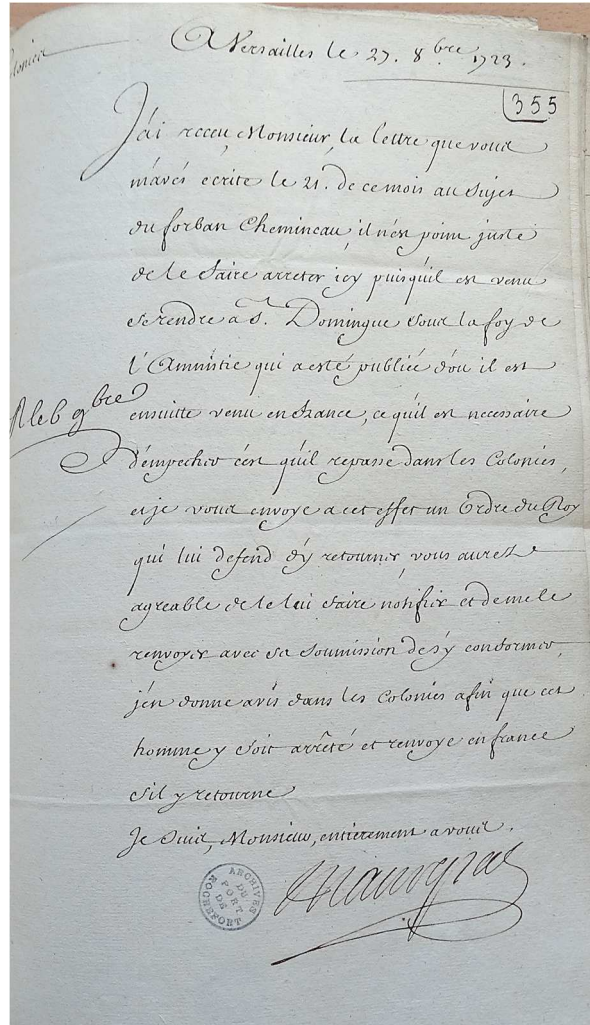 A Versailles le 27. 8bre 1723.
355
J'ai receu, Monsieur, la lettre que vous
m'avés écrite le 21. de ce mois au sujet
du forban Chemineau, il n'est point juste
de le faire arreter icy puisqu'il est venu
se rendre a St. Domingue sous la foy de
l'Amnistie qui a esté publiée d'ou il est
ensuitte venu en france, ce qu'il est necessaire
d'empecher c'est qu'il repasse dans les Colonies,
et je vous envoye a cet effet un Ordre du Roy
qui lui defend d'y retourner, vous aurez
agreable de le lui faire notifier et de me le
renvoyer avec sa soumission de s'y conformer,
j'en donne avis dans les Colonies afin que cet
homme y soit arrêté et renvoyé en france
s'il y retourne
R le 6 9bre
Je suis, Monsieur, entierement a vous.
ARCHIVES DU PORT DE ROCHEFORT